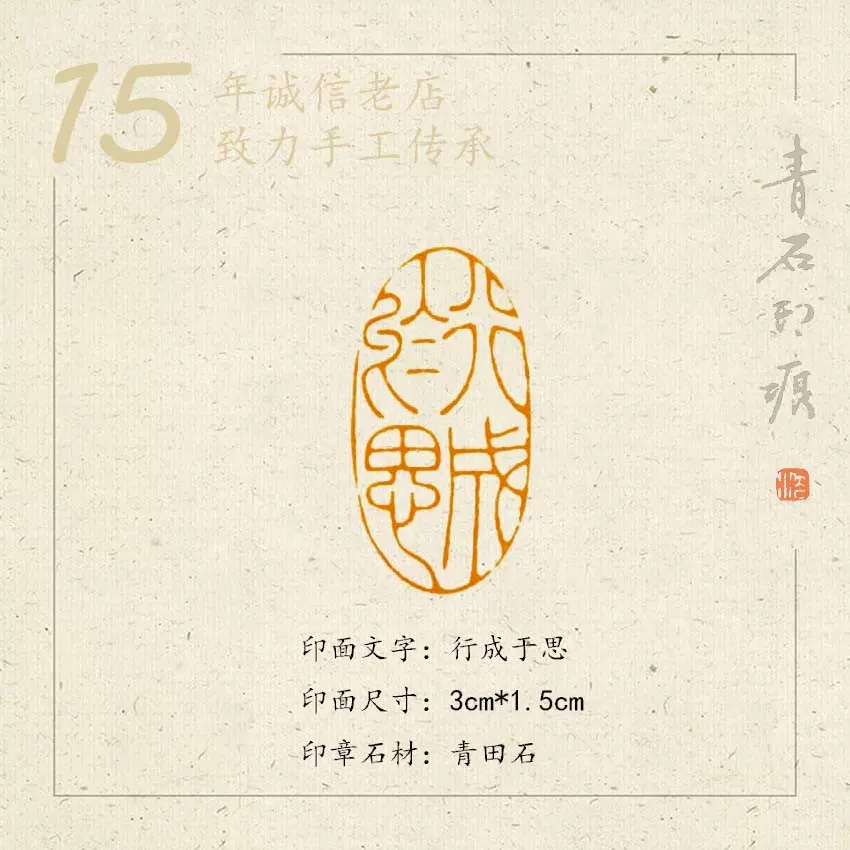 15
年诚信老店
致力手工传承
青石印痕
行成于思
印面文字：行成于思
印面尺寸：3cm*1.5cm
印章石材：青田石